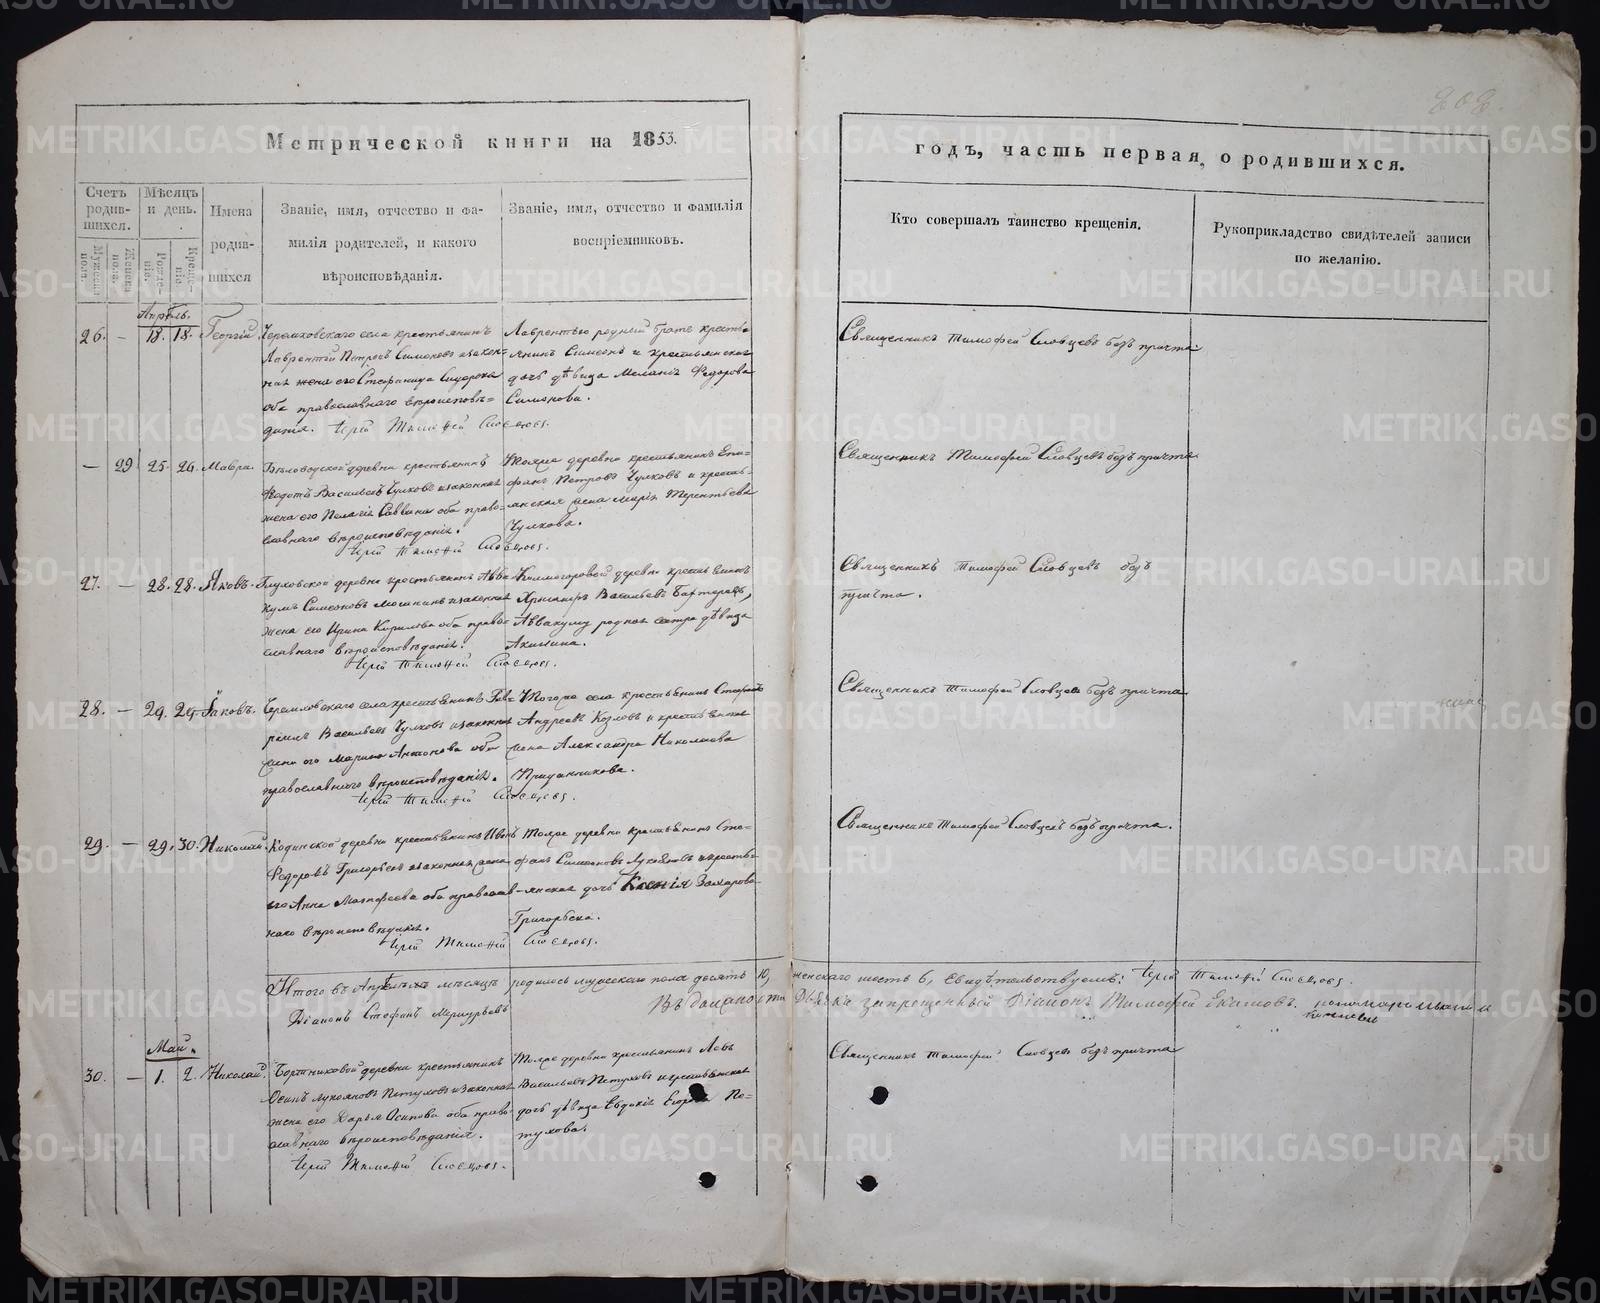 Метрической книги на 1853.
годъ, часть первая, о родившихся.
Счетъ родив-шихся.
Мужеска пола.
Женска пола.
Мѣсяцъ и день.
Рожде-нія.
Креще-нія.
Имена родив-шихся
Званіе, имя, отчество и фа-
милія родителей, и какого
вѣроисповѣданія.
Званіе, имя, отчество и фамилія
воспріемниковъ.
Кто совершалъ таинство крещенія.
Рукоприкладство свидѣтелей записи
по желанію.
Апрѣль.
26. – 18. 18. Георгій
села крестьянинъ
Лаврентій Петровъ Симоновъ изакон-
ная жена его Стефанида Сидорова
оба православнаго вѣроисповѣ=
данія. Іерей Тимофей Словцовъ.
Лаврентью родный братъ кресть-
янинъ Симеонъ и крестьянская
дочь дѣвица Меланія Федорова
Симонова.
Священникъ Тимофей Словцовъ безъ причта
– 29 25. 26. Мавра.
деревни крестьянинъ
Федотъ Васильевъ Чулковъ изаконная
жена его Пелагія Саввина оба право-
славнаго вѣроисповѣданія.
Іерей Тимофей Словцовъ.
Тояже деревни крестьянинъ Епи-
фанъ Петровъ Чулковъ и кресть-
янская жена Марія Терентьева
Чулкова.
Священникъ Тимофей Словцовъ безъ причта
27. – 28. 28. Яковъ.
Глуховской деревни крестьянинъ Авва-
кумъ Симеоновъ изаконная
жена его Ирина Кирилова оба право-
славнаго вѣроисповѣданія.
Іерей Тимофей Словцовъ.
деревни крестьянинъ
Васильевъ
Аввакуму родная сестра дѣвица
Акилина.
Священникъ Тимофей Словцовъ безъ
причта.
28. – 29. 29. Іаковъ.
села крестьянинъ Гав-
ріилъ Васильевъ Чулковъ изаконная
жена его Марина Антонова оба
православнаго вѣроисповѣданія.
Іерей Тимофей Словцовъ.
Тогоже села крестьянинъ
Андреевъ Козловъ и крестьянская
жена Александра Николаева
Приданникова.
Священникъ Тимофей Словцовъ безъ причта
29. – 29. 30. Николай.
Кодинской деревни крестьянинъ Иванъ
Федоровъ Григорьевъ изаконная жена
его Анна Матфеева оба православ-
наго вѣроисповѣданія.
Іерей Тимофей Словцовъ.
Тояже деревни крестьянинъ Сте-
фанъ Симеоновъ и кресть-
янская дочь Ксенія Захарова
Григорьева.
Священникъ Тимофей Словцовъ безъ причта.
Итого въ Апрѣлѣ мѣсяцѣ родилось мужескаго пола десять 10, женскаго шесть 6, Свидѣтельствуемъ: Іерей Тимофей Словцовъ.
Діаконъ Стефанъ Меркурьевъ
Въ должности Дьячка запрещенный Діаконъ
Май.
30. – 1. 2. Николай.
деревни крестьянинъ
Осипъ Лукояновъ Пѣтуховъ изаконная
жена его Дарья Осипова оба право-
славнаго вѣроисповѣданія.
Іерей Тимофей Словцовъ.
Тояже деревни крестьянинъ Левъ
Васильевъ Пѣтуховъ и крестьянская
дочь дѣвица Евдокія Егорова Пѣ=
тухова.
Священникъ Тимофей Словцовъ безъ причта
METRIKI.GASO-URAL.RU